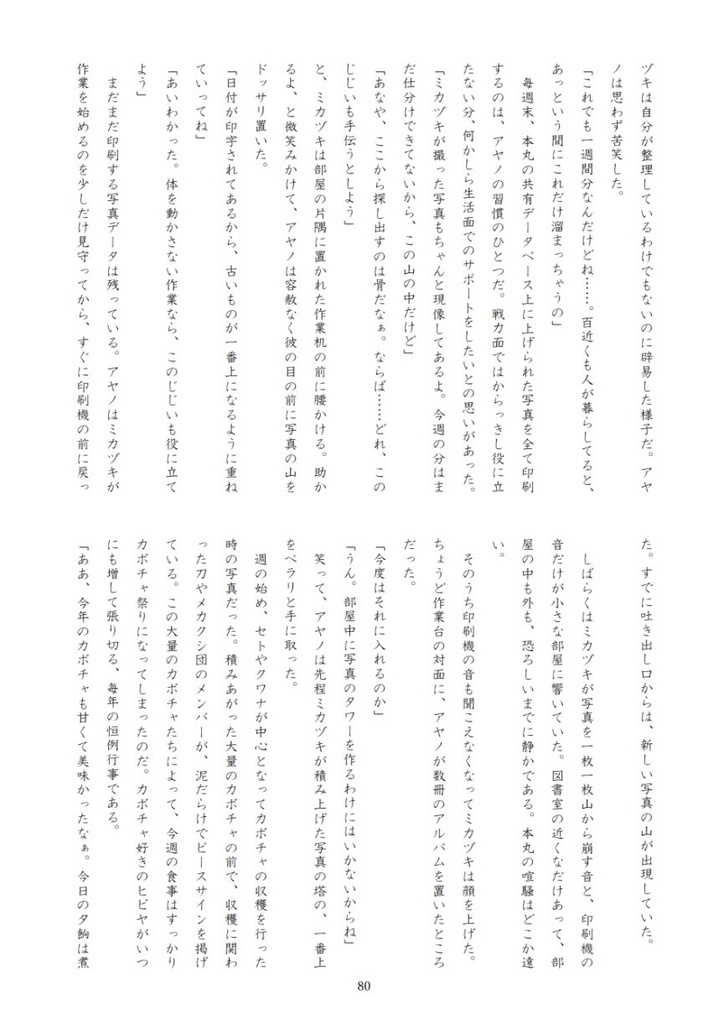 ヅキは自分が整理しているわけでもないのに辟易した様子だ。アヤ
ノは思わず苦笑した。
「これでも一週間分なんだけどね……。百近くも人が暮らしてると、
あっという間にこれだけ溜まっちゃうの」
毎週末、本丸の共有データベース上に上げられた写真を全て印刷
するのは、アヤノの習慣のひとつだ。戦力面ではからっきし役に立
たない分、何かしら生活面でのサポートをしたいとの思いがあった。
「ミカヅキが撮った写真もちゃんと現像してあるよ。今週の分はま
だ仕分けできてないから、この山の中だけど」
「あなや、ここから探し出すのは骨だなぁ。ならば……どれ、この
じじいも手伝うとしよう」
と、ミカヅキは部屋の片隅に置かれた作業机の前に腰かける。助か
るよ、と微笑みかけて、アヤノは容赦なく彼の目の前に写真の山を
ドッサリ置いた。
「日付が印字されてあるから、古いものが一番上になるように重ね
ていってね」
「あいわかった。体を動かさない作業なら、このじじいも役に立て
よう」
まだまだ印刷する写真データは残っている。アヤノはミカヅキが
作業を始めるのを少しだけ見守ってから、すぐに印刷機の前に戻っ
た。すでに吐き出し口からは、新しい写真の山が出現していた。
しばらくはミカヅキが写真を一枚一枚山から崩す音と、印刷機の
音だけが小さな部屋に響いていた。図書室の近くなだけあって、部
屋の中も外も、恐ろしいまでに静かである。本丸の喧騒はどこか遠
い。
そのうち印刷機の音も聞こえなくなってミカヅキは顔を上げた。
ちょうど作業台の対面に、アヤノが数冊のアルバムを置いたところ
だった。
「今度はそれに入れるのか」
「うん。部屋中に写真のタワーを作るわけにはいかないからね」
笑って、アヤノは先程ミカヅキが積み上げた写真の塔の、一番上
をペラリと手に取った。
週の始め、セトやクワナが中心となってカボチャの収穫を行った
時の写真だった。積みあがった大量のカボチャの前で、収穫に関わ
った刀やメカクシ団のメンバーが、泥だらけでピースサインを掲げ
ている。この大量のカボチャたちによって、今週の食事はすっかり
カボチャ祭りになってしまったのだ。カボチャ好きのヒビヤがいつ
にも増して張り切る、毎年の恒例行事である。
「ああ、今年のカボチャも甘くて美味かったなぁ。今日の夕餉は煮
80